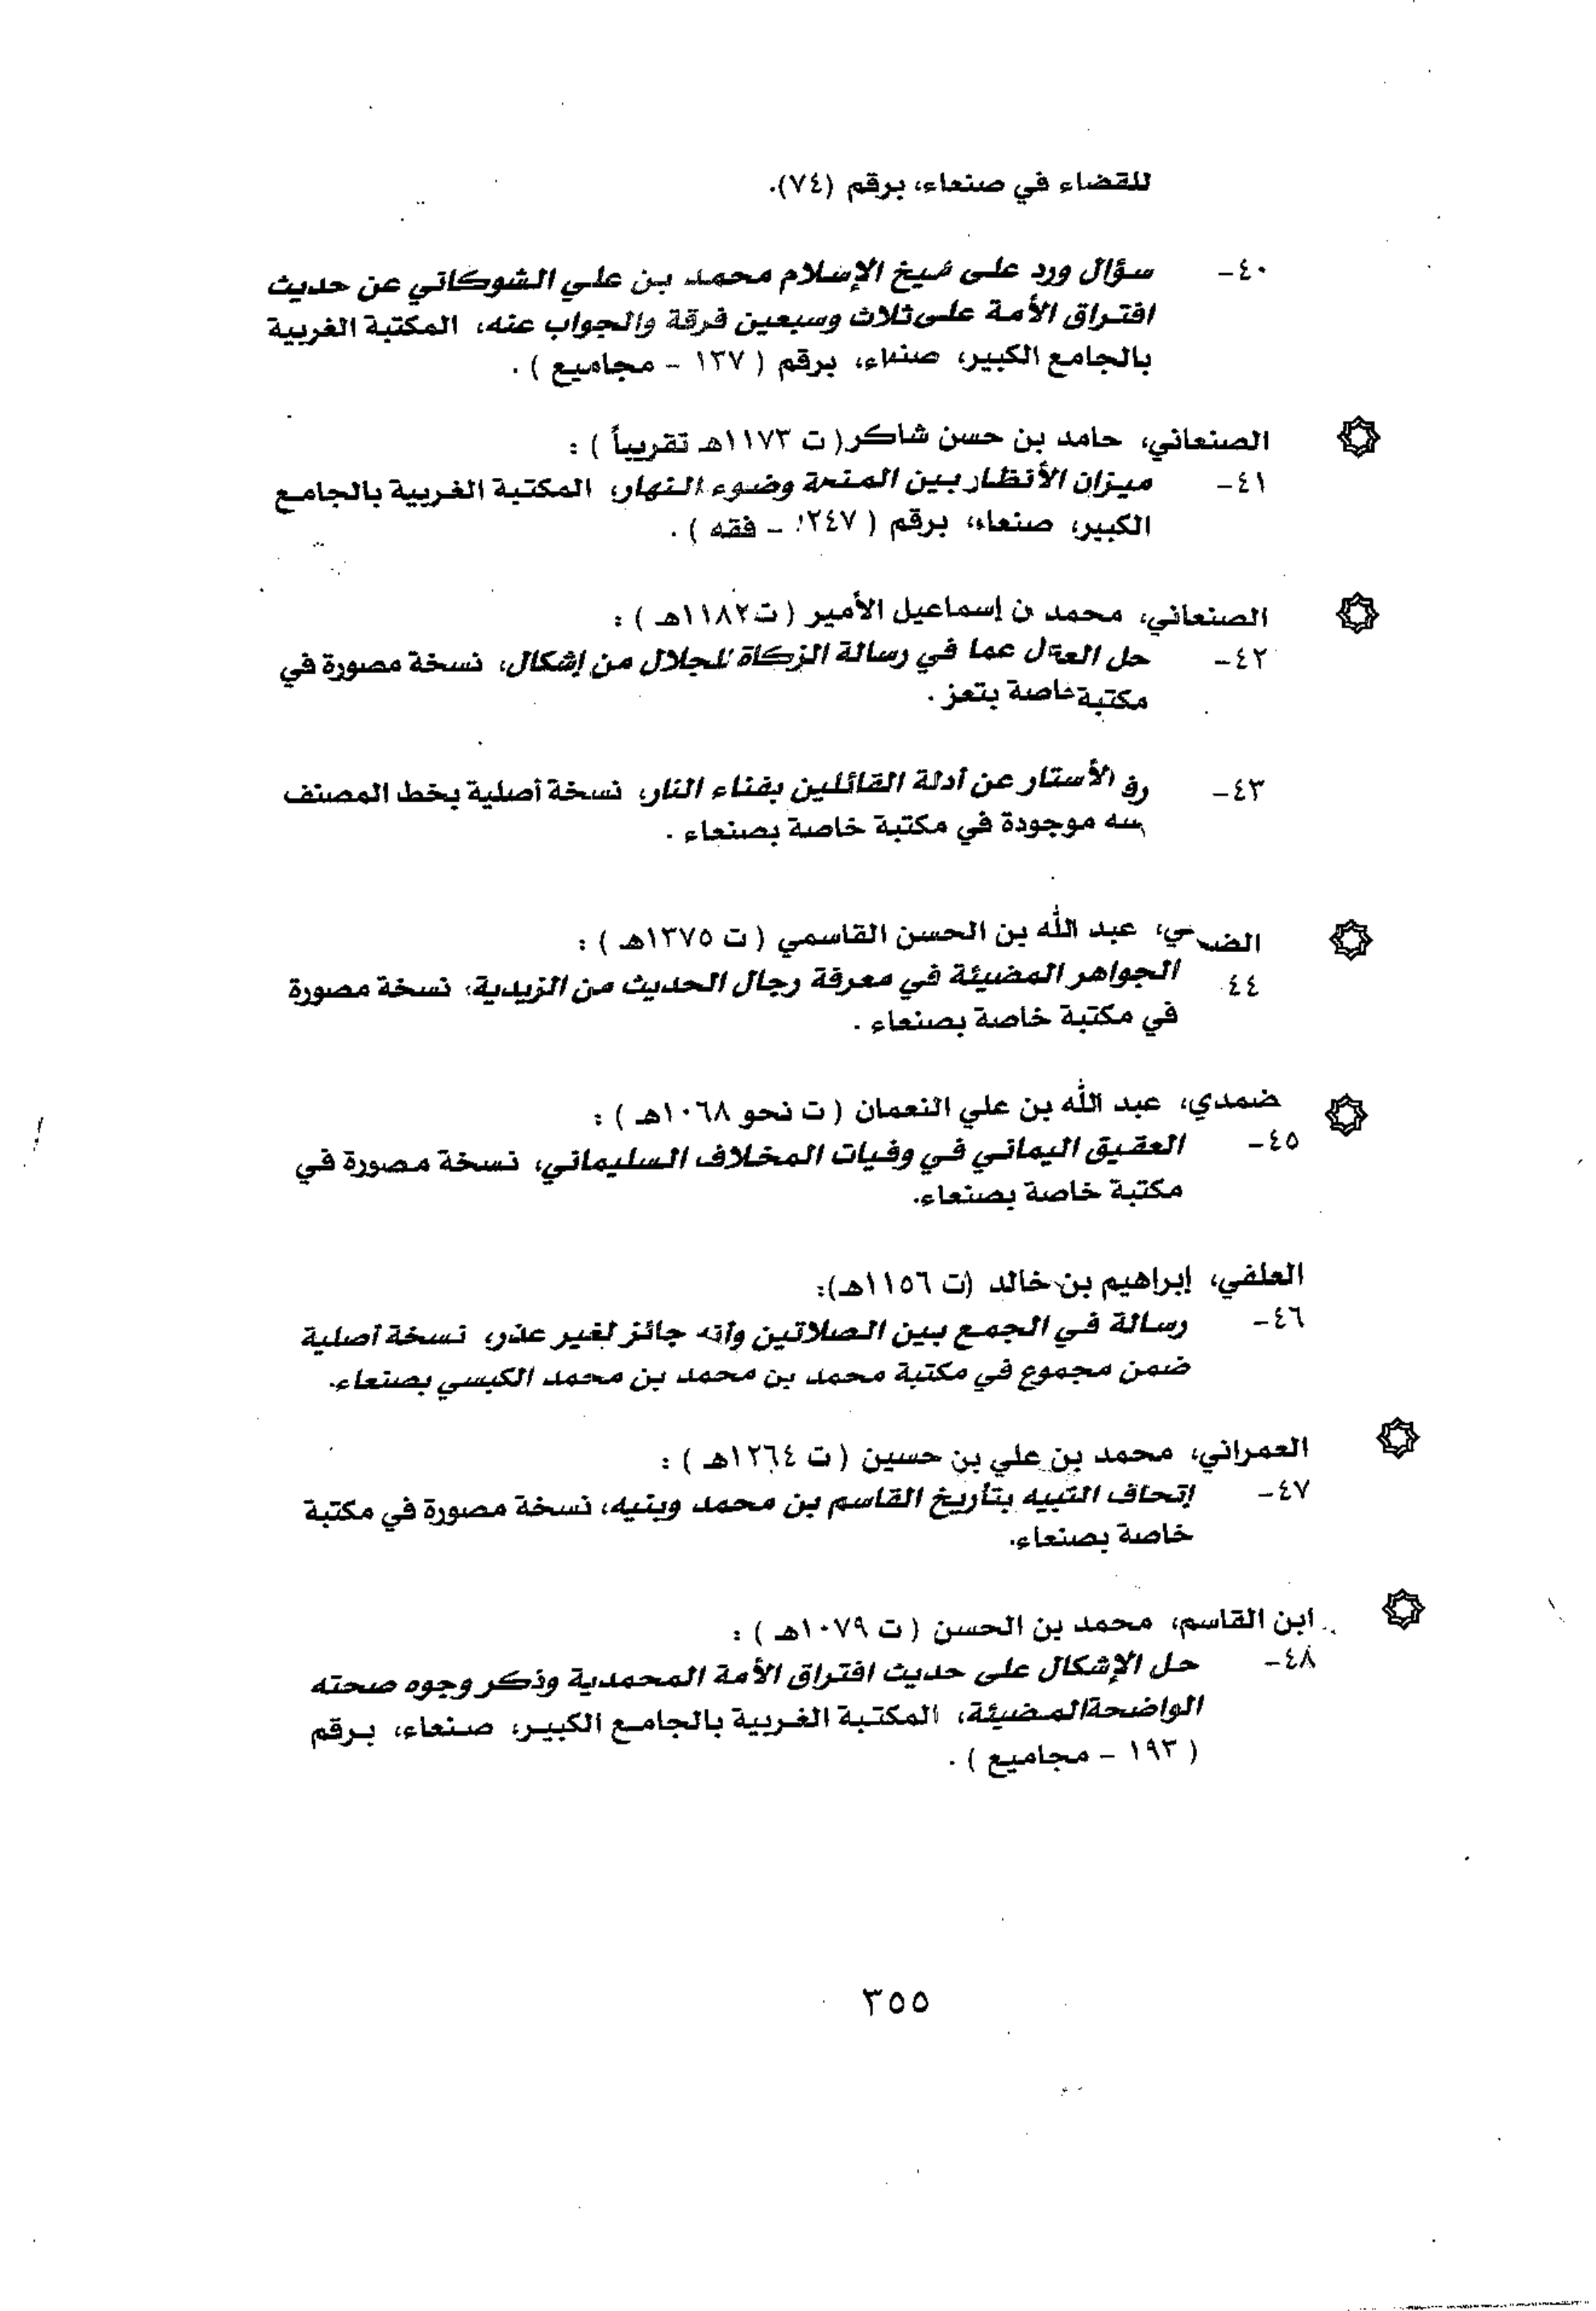 للقضاء في صنعاء، برقم (٧٤).
٤٠- سؤال ورد على شيخ الإسلام محمد بن علي الشوكاني عن حديث
افتراق الأمة على ثلاث وسبعين فرقة والجواب عنه، المكتبة الغربية
بالجامع الكبير، صنعاء، برقم ( ١٣٧ - مجاميع ) .
الصنعاني، حامد بن حسن شاكر( ت ١١٧٣هـ تقريباً ) :
٤١- ميزان الأنظار بين المنحة وضوء النهار، المكتبة الغربية بالجامع
الكبير، صنعاء، برقم ( ٢٤٧ - فقه ) .
الصنعاني، محمد بن إسماعيل الأمير ( ت١١٨٢هـ ) :
٤٢- حل العقال عما في رسالة الزكاة للجلال من إشكال، نسخة مصورة في
مكتبة خاصة بتعز .
٤٣- الأستار عن أدلة القائلين بفناء النار، نسخة أصلية بخط المصنف
موجودة في مكتبة خاصة بصنعاء .
عبد الله بن الحسن القاسمي ( ت ١٣٧٥هـ ) :
٤٤ الجواهر المضيئة في معرفة رجال الحديث من الزيدية، نسخة مصورة
في مكتبة خاصة بصنعاء .
ضمدي، عبد الله بن علي النعمان ( ت نحو ١٠٦٨هـ ) :
٤٥- العقيق اليماني في وفيات المخلاف السليماني، نسخة مصورة في
مكتبة خاصة بصنعاء.
العلفي، إبراهيم بن خالد (ت ١١٥٦هـ):
٤٦- رسالة في الجمع بين الصلاتين وأنه جائز لغير عذر، نسخة أصلية
ضمن مجموع في مكتبة محمد بن محمد بن محمد الكبسي بصنعاء.
العمراني، محمد بن علي بن حسين ( ت ١٢٦٤هـ ) :
٤٧- إتحاف النبيه بتأريخ القاسم بن محمد وبنيه، نسخة مصورة في مكتبة
خاصة بصنعاء.
ابن القاسم، محمد بن الحسن ( ت ١٠٧٩هـ ) :
٤٨- حل الإشكال على حديث افتراق الأمة المحمدية وذكر وجوه صحته
الواضحة المضيئة، المكتبة الغربية بالجامع الكبير، صنعاء، برقم
( ١٩٣ - مجاميع ) .
٣٥٥